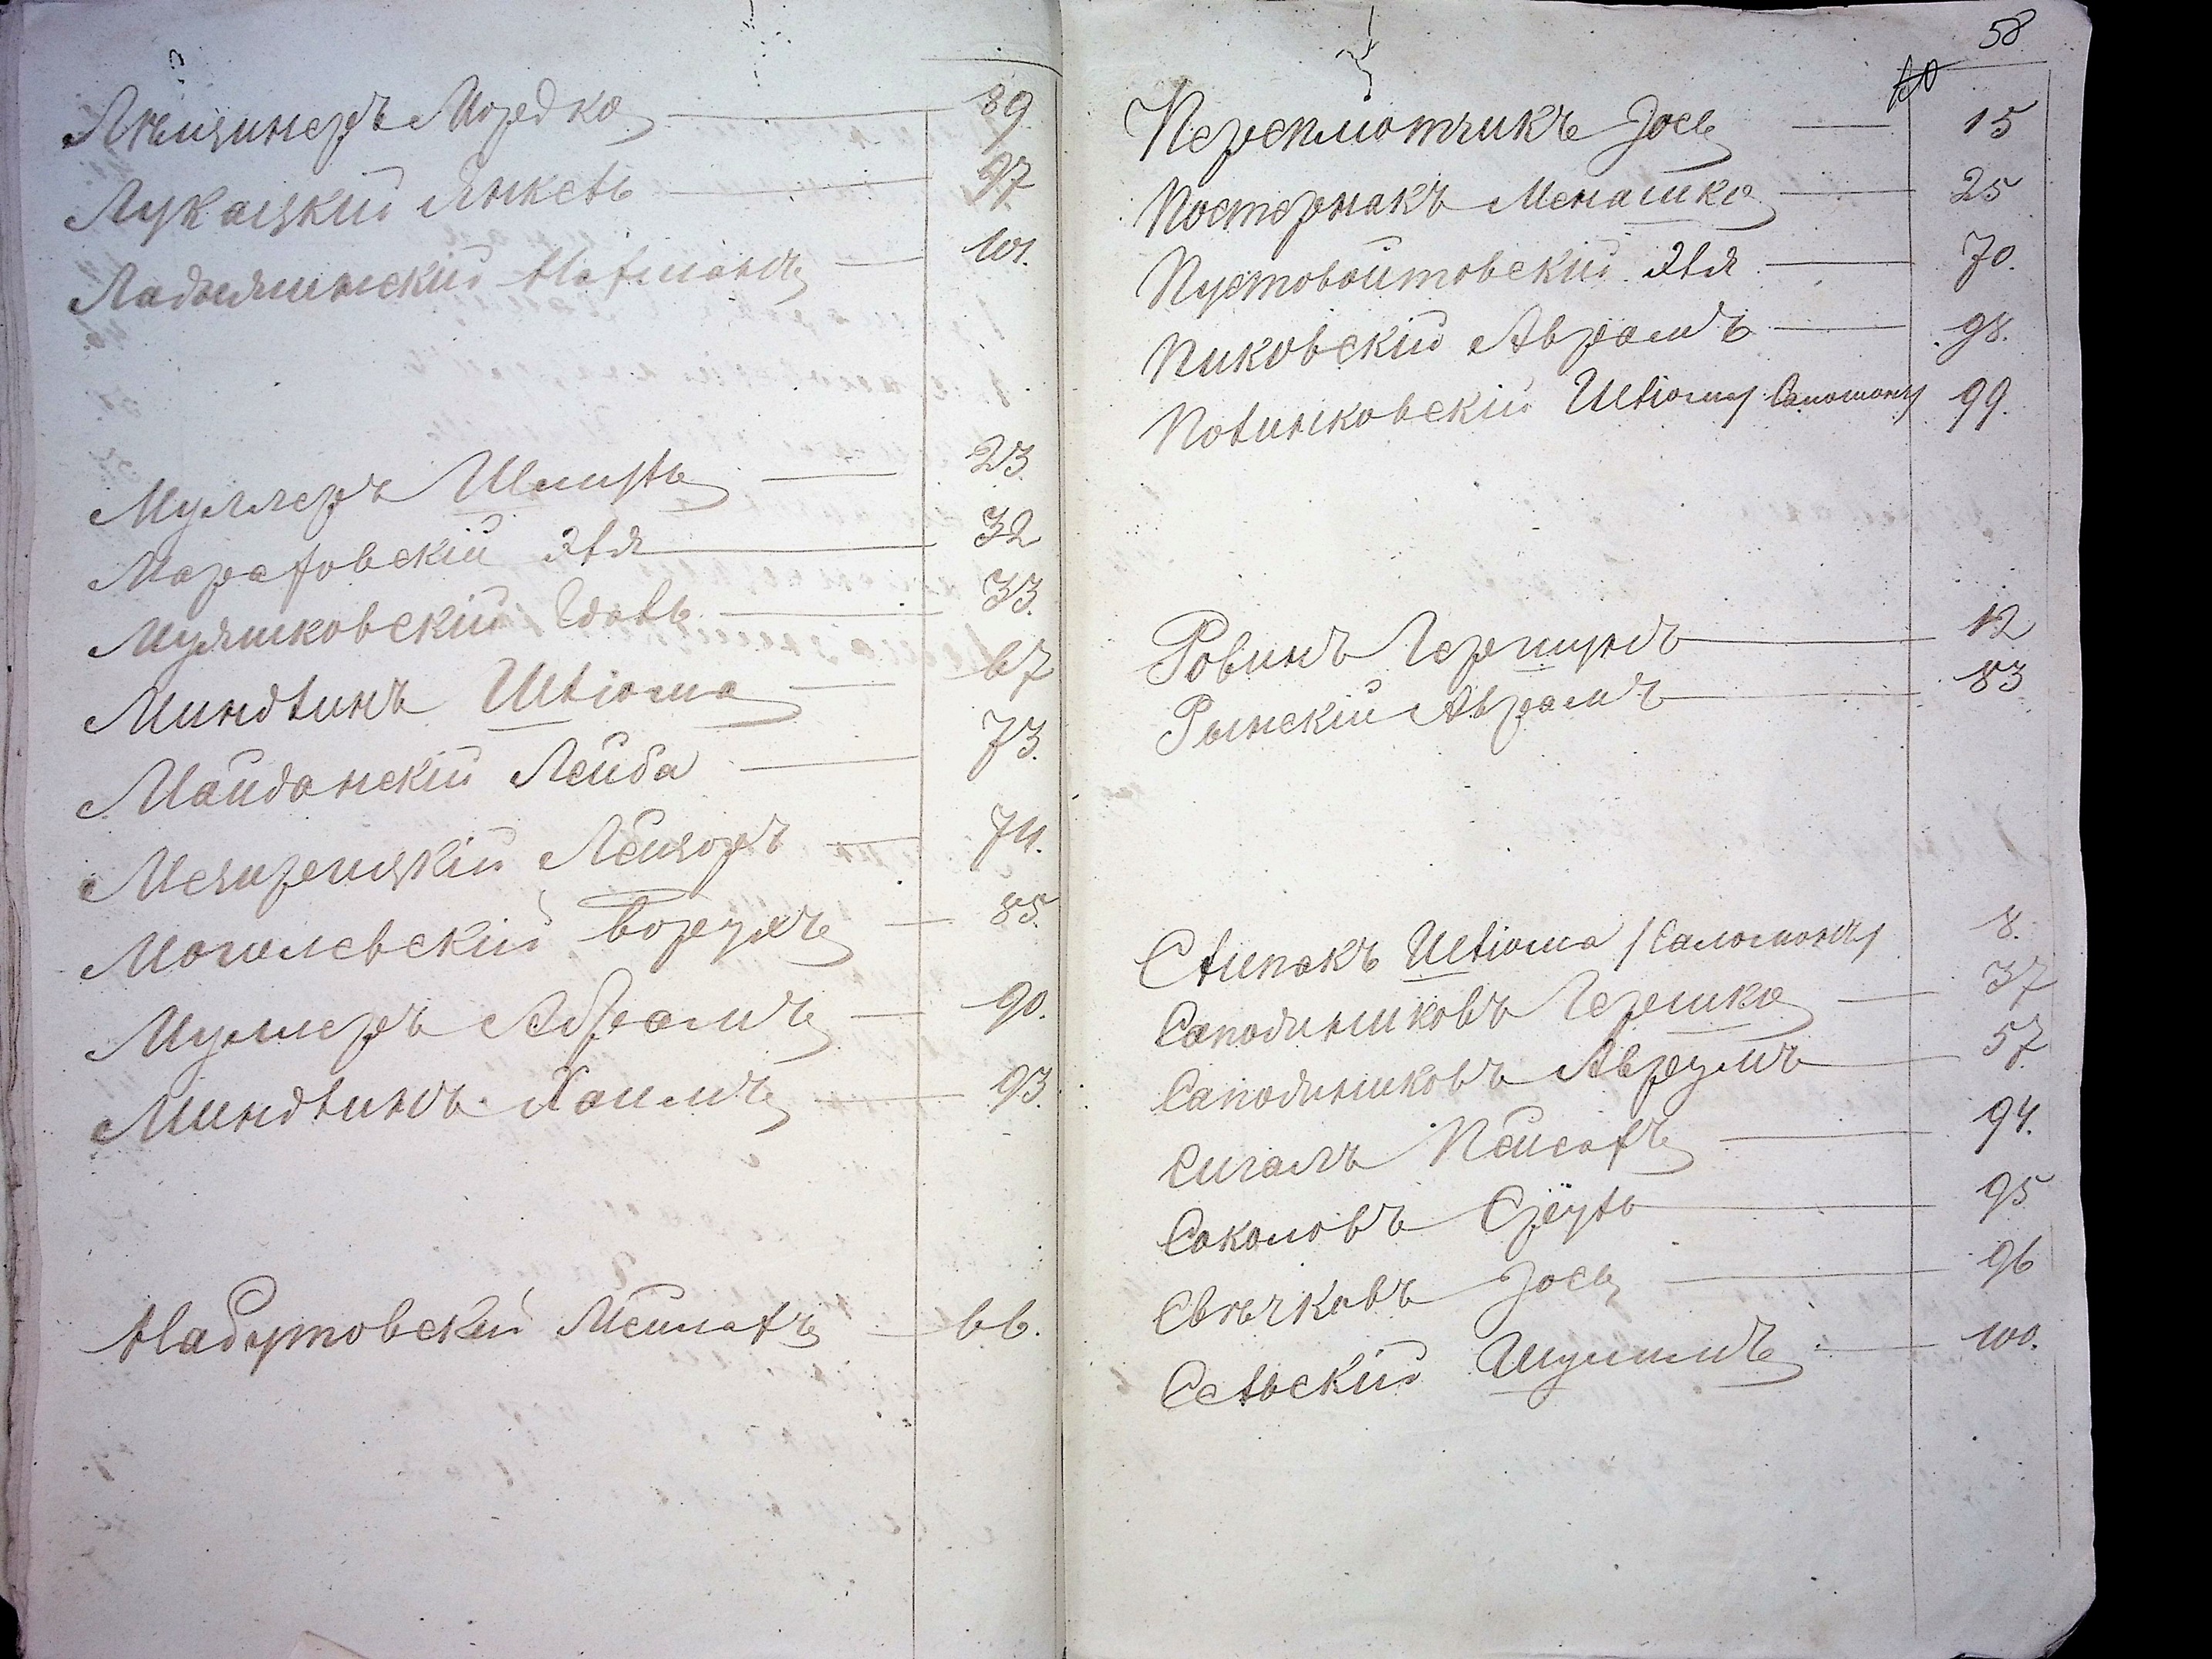 Лѣщинеръ Мордко 89
Лукацкій Янкель 97
Ладыжинскій Нахманъ 101.
Муллеръ Шмуль 23
Мараховскій Эля 32
Мушиковскій Идель 33.
Миндлинъ Шлiома 67
Майданскій Лейба 73.
Межирицкій Лейзоръ 74.
Могилевскій Борухъ 85.
Муллеръ Абрамъ 90.
Миндлинъ Хаимъ 93.
Набутовскій Меилахъ 66.
58
Переплютчикъ Іось 15
Постернакъ Менашко 25
Пустовойтовскій Эля 70.
Пиковскій Аврамъ 98.
Полинковскій Шлiома / Саломонъ / 99.
Ровинъ Гершунъ 12
Рынскій Аврамъ 83
Слипакъ Шлiома / Саломонъ / 8.
Саподинниковъ Гершко 37
Саподинниковъ Аврумъ 57.
Сигалъ Пейсахъ 94.
Соколовъ Сруль 95
Свѣчковъ Іось 96
Сельскій Шулимъ 100.